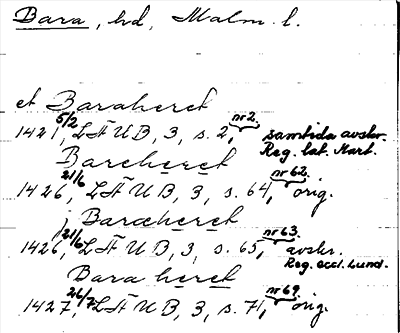 Bara, hd, Malm. l.
et Baraheret
1421 5/2, LÄUB, 3, s. 2, nr 2. samtida avskr.
Reg. lat. Mart.
Bareheret
1426 21/6, LÄUB, 3, s. 64, nr 62. orig.
i Baraheret
1426 21/6, LÄUB, 3, s. 65, nr 63. avskr.
Reg. eccl. Lund.
Bara heret
1427 26/7, LÄUB, 3, s. 71, nr 69. orig.